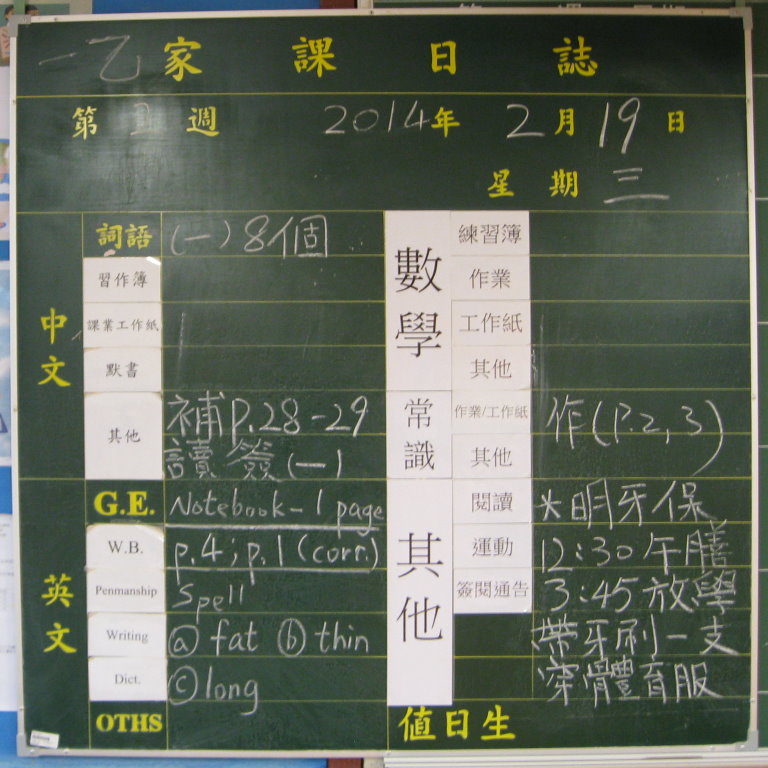 一乙家課日誌
第 週 2014年 2月19日
星期三
中文
詞語 (一)8個
習作簿
課業工作紙
默書
其他 補P.28-29
讀簽(一)
英文
G.E. Notebook-1 page
W.B. p.4;p.1(corr.)
Penmanship Spell
Writing ⓐ fat ⓑ thin
Dict. ⓒ long
OTHS
數學
練習簿
作業
工作紙
其他
常識
作業/工作紙 作(P.2,3)
其他
其他
閱讀 *明牙保
運動 12:30午膳
簽閱通告 3:45放學
帶牙刷一支
穿體育服
值日生